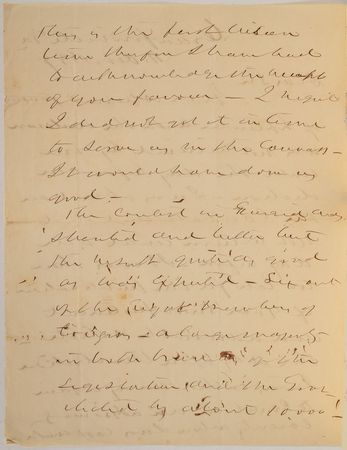 This is the first leisure
time therefor I have had
to acknowledge the receipt
of your favour — I regret
I did not get it in time
to serve us in the canvass —
It would have done us
good —
The contest in was
and bitter but
the result quite as good
as was expected — Six out
of the eight members of
Congress — a large majority
in both branches of the
Legislature, and the Gov.
elected by about 10,000!